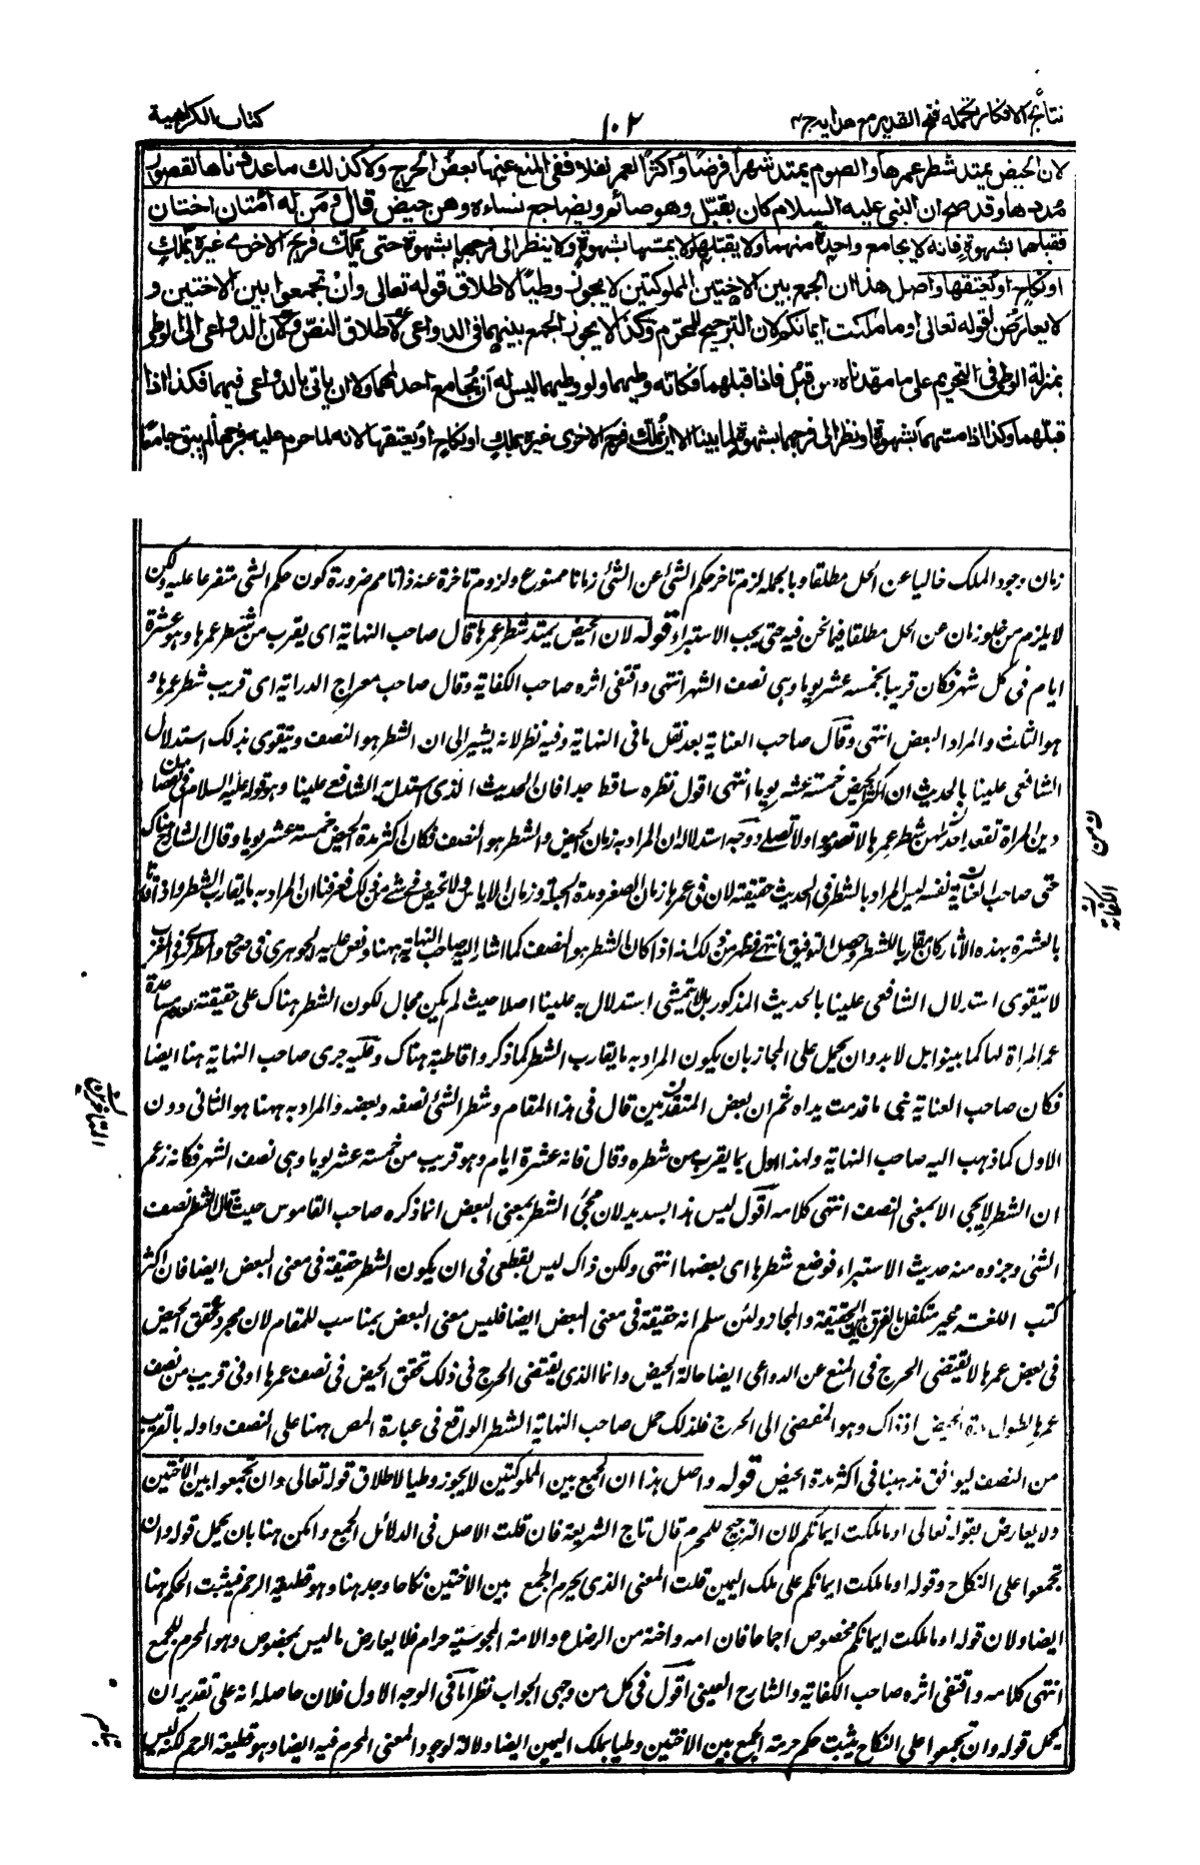 نتائج الافكار تكمله فتح القدير مع هدايه ج٤
١٠٢
كتاب الكراهية
لان الحيض يمتد شطر عمرها والصوم يمتد شهرا فرضا واكثر العمر نفلا ففى المنع عنها بعض الحرج ولا كذلك ما عددناها لقصور
مددها وقد صح ان النبى عليه السلام كان يقبّل وهو صائم ويضاجع نساءه وهن حيض قال ومن له امتان اختان
فقبلهما بشهوة فانه لا يجامع واحدة منهما ولا يقبلها ولا يمسها بشهوة ولا ينظر الى فرجها بشهوة حتى يملك فرج الاخرى غيره بملك
او نكاح او يعتقها واصل هذا ان الجمع بين الاختين المملوكتين لا يجوز وطيا لاطلاق قوله تعالى وان تجمعوا بين الاختين و
لا يعارض لقوله تعالى او ما ملكت ايمانكم لان الترجيح للمحرم وكذا لا يجوز الجمع بينهما فى الدواعى لاطلاق النص ولان الدواعى الى الوطى
بمنزلة الوطى فى التحريم على ما مهدناه من قبل فاذا قبلهما فكانه وطيهما ولو وطيهما ليس له ان يجامع احدهما ولا ان ياتى بالدواعى فيهما فكذا اذا
قبلهما وكذا اذا مسهما بشهوة او نظر الى فرجهما بشهوة لما بينا الا ان يملك فرج الاخرى غيره بملك او نكاح او يعتقها لانه لما حرم عليه فرجها لم يبق جامعا
زمان وجود الملك خاليا عن الحل مطلقا وبالجملة لزم تاخر حكم الشئ عن الشئ زمانا ممنوع ولزوم تاخره عنه ذاتا مم ضرورة كون حكم الشى متفرعا عليه ولكن
لا يلزم من خلو زمان عن الحل مطلقا فيما نحن فيه حتى يجب الاستبراء قوله لان الحيض يمتد شطر عمرها قال صاحب النهاية اى يقرب من شطر عمرها وهو عشرة
ايام فى كل شهر فكان قريبا بخمسة عشر يوما وهى نصف الشهر انتهى واقتفى اثره صاحب الكفاية وقال صاحب معراج الدراية اى قريب شطر عمرها و
هو الثلث والمراد البعض انتهى وقال صاحب العناية بعد نقل ما فى النهاية وفيه نظر لانه يشير الى ان الشطر هو النصف ويتقوى بذلك استدلال
الشافعى علينا بالحديث ان اكثر الحيض خمسة عشر يوما انتهى اقول نظره ساقط جدا فان الحديث الذى استدل به الشافعى علينا وهو قوله عليه السلام فى نقصان
دين المراة تقعد احدٰهن شطر عمرها لا تصوم ولا تصلى ووجه استدلاله ان المراد به زمان الحيض والشطر هو النصف فكان اكثر مدة الحيض خمسة عشر يوما وقال الشارح هناك
حتى صاحب العناية نفسه ليس المراد بالشطر فى الحديث حقيقته لان فى عمرها زمان الصغر ومدة الحبل وزمان الاياس ولا تحيض فى شئ من ذلك فعرفنا ان المراد به ما يقارب الشطر واذا قدرنا
بالعشرة بهذه الآثار كان مقاربا للشطر وحصل التوفيق انتهى فظهر من ذلك انه اذا كان الشطر هو النصف كما اشار اليه صاحب النهاية ههنا ونص عليه الجوهرى فى صحاح والمطرزى فى المغرب
لا يتقوى استدلال الشافعى علينا بالحديث المذكور بل لا يتمشى استدلال به علينا اصلا حيث لم يكن مجال لكون الشطر هناك على حقيقته لعدم مساعدة
عمر المراة لها كما بينوا بل لا بد وان يحمل على المجاز بان يكون المراد به ما يقارب الشطر كما ذكروا قاطبة هناك وعليه جرى صاحب النهاية هنا ايضا
فكان صاحب العناية نسى ما قدمت يداه ثم ان بعض المتقدمين قال فى هذا المقام وشطر الشئ نصفه وبعضه والمراد به ههنا هو الثانى دون
الاول كما ذهب اليه صاحب النهاية ولهذا اول بما يقرب من شطره وقال فانه عشرة ايام وهو قريب من خمسة عشر يوما وهى نصف الشهر فكانه زعم
ان الشطر لا يجئ الا بمعنى النصف انتهى كلامه اقول ليس هذا بسديد لان مجئ الشطر بمعنى البعض انما ذكره صاحب القاموس حيث قال الشطر نصف
الشئ وجزوه منه حديث الاسراء فوضع شطرها اى بعضها انتهى ولكن ذاك ليس بقطعى فى ان يكون الشطر حقيقة فى معنى البعض ايضا فان اكثر
كتب اللغت غير متكفل بالفرق بين الحقيقة والمجاز ولئن سلم انه حقيقة فى معنى البعض ايضا فليس معنى البعض بمناسب للمقام لان مجرد تحقق الحيض
فى بعض عمرها لا يقتضى الحرج فى المنع عن الدواعى ايضا حالة الحيض وانما الذى يقتضى الحرج فى ذلك تحقق الحيض فى نصف عمرها او فى قريب من نصف
عمرها لطول مدة الحيض اذ ذاك وهو المفضى الى الحرج فلذلك حمل صاحب النهاية الشطر الواقع فى عبارة المص ههنا على النصف واوله بالقريب
من النصف ليوافق مذهبنا فى اكثر مدة الحيض قوله واصل هذا ان الجمع بين المملوكتين لا يجوز وطيا لاطلاق قوله تعالى وان تجمعوا بين الاختين
ولا يعارض بقوله تعالى او ما ملكت ايمانكم لان الترجيح للمحرم قال تاج الشريعة فان قلت الاصل فى الدلائل الجمع وامكن هنا بان يحمل قوله وان
تجمعوا على النكاح وقوله او ما ملكت ايمانكم على ملك اليمين قلت المعنى الذى يحرم الجمع بين الاختين نكاحا وجد هنا وهو قطيعة الرحم فيثبت الحكم هنا
ايضا ولان قوله او ما ملكت ايمانكم مخصوص اجماعا فان امه واخته من الرضاع والامة المجوسية حرام فلا يعارض ما ليس بمخصوص وهو المحرم للجمع
انتهى كلامه واقتفى اثره صاحب الكفاية والشارح العينى اقول فى كل من وجهى الجواب نظر اما فى الوجه الاول فلان حاصله انه على تقدير ان
يحمل قوله وان تجمعوا على النكاح يثبت حكم حرمة الجمع بين الاختين وطيا بملك اليمين ايضا دلالة لوجود المعنى المحرم فيه ايضا وهو قطيعة الرحم لكنه ليس